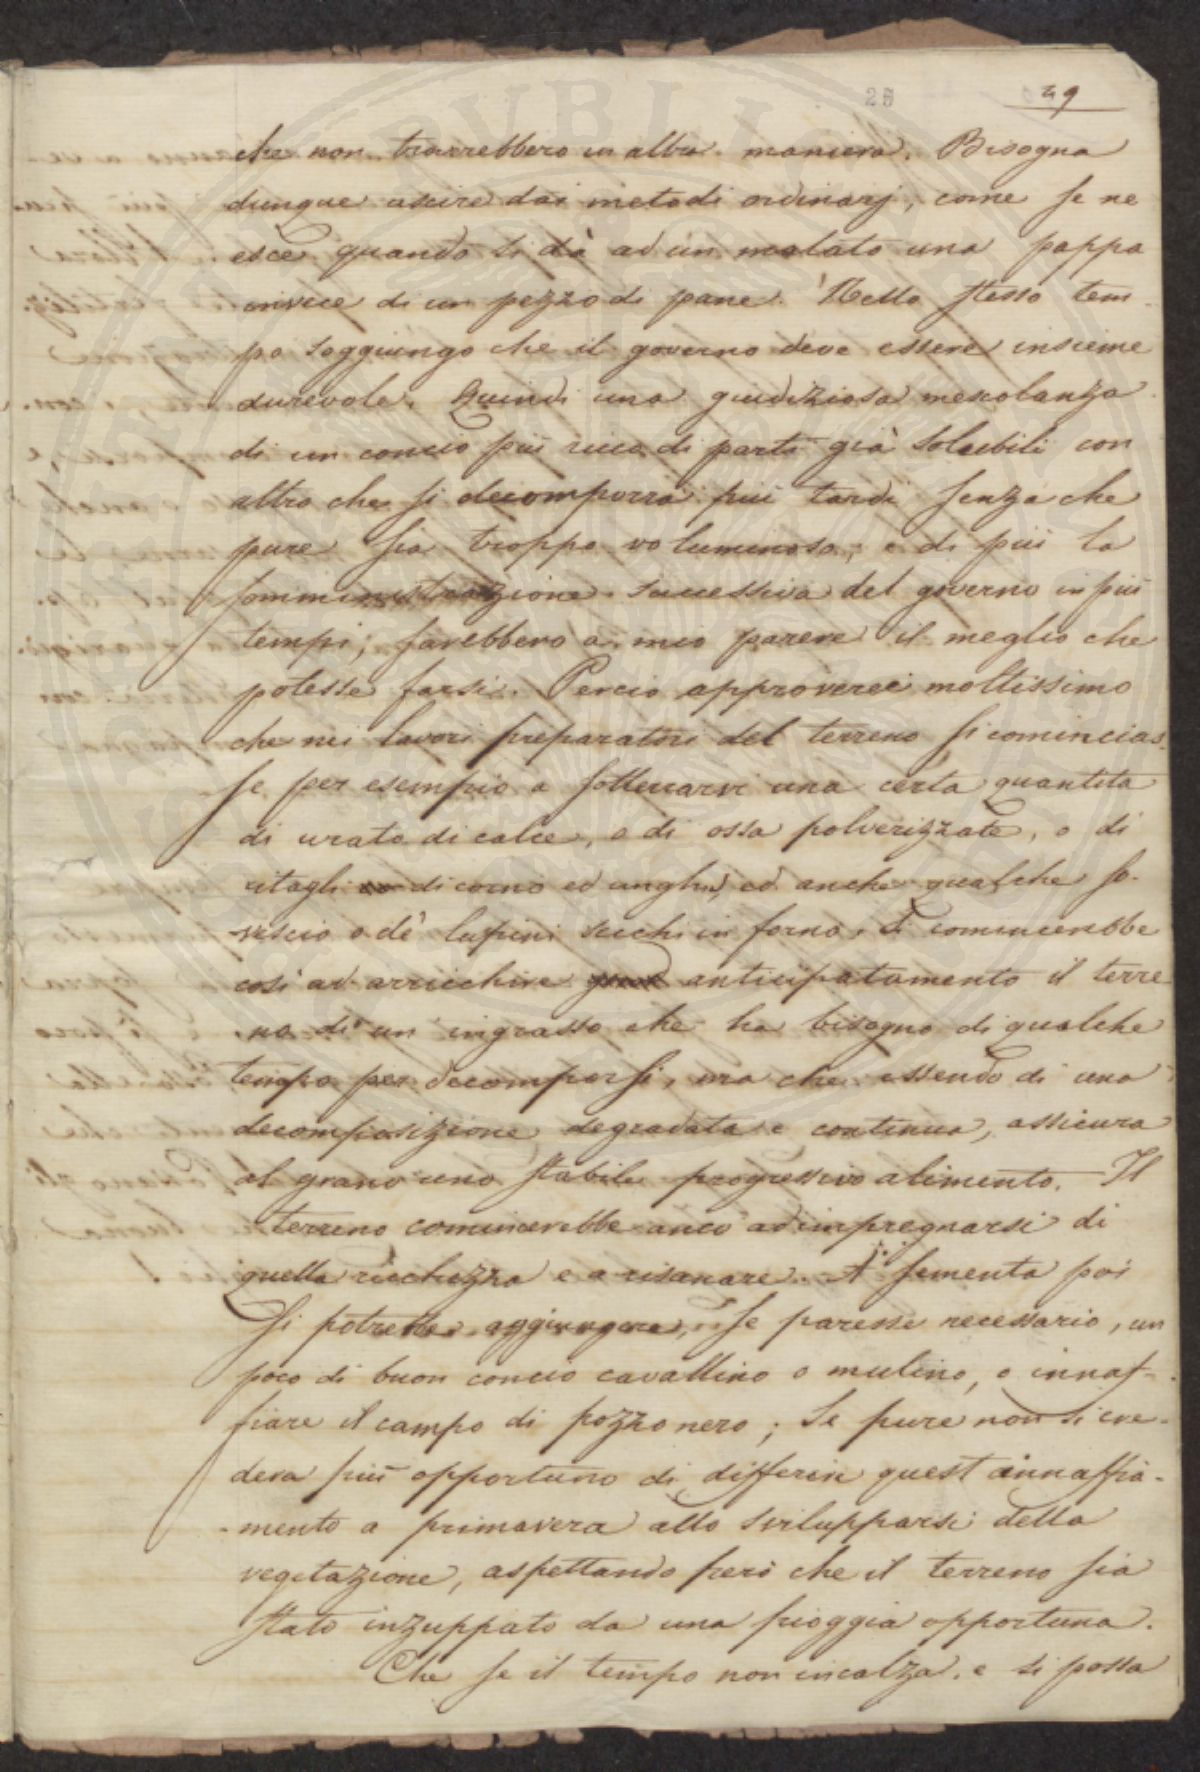 28 29
che non trarrebbero in altra maniera. Bisogna
dunque uscire dai metodi ordinarj, come se ne
esce quando si dà ad un malato una pappa
invece di un pezzo di pane. Nello stesso tem-
po soggiungo che il governo deve essere insieme
durevole. Quindi una giudiziosa mescolanza
di un concio più ricco di parti già solubili con
altro che si decomporrà più tardi senza che
pure sia troppo voluminoso; e di più la
somministrazione successiva del governo in più
tempi; farebbero a mio parere il meglio che
potesse farsi. Perciò approverei moltissimo
che nei lavori preparatori del terreno si comincias-
se per esempio a sotterrarvi una certa quantità
di urato di calce, o di ossa polverizzate, o di
ritagli di corno ed unghie, ed anche qualche so-
vescio o de' lupini secchi in forno. Si comincerebbe
così ad arricchire anticipatamente il terre
no di un ingrasso che ha bisogno di qualche
tempo per decomporsi, ma che essendo di una
decomposizione degradata e continua, assicura
al grano uno stabile progressivo alimento. Il
terreno comincerebbe anco ad impregnarsi di
quella ricchezza e a risanare. A sementa poi
si potrebbe aggiungere, se paresse necessario, un
poco di buon concio cavallino o mulino, o innaf-
fiare il campo di pozzo nero; se pure non si cre-
deva più opportuno di differire quest'innaffia-
-mento a primavera allo svilupparsi della
vegetazione, aspettando però che il terreno sia
stato inzuppato da una pioggia opportuna.
Che se il tempo non incalza, e si possa